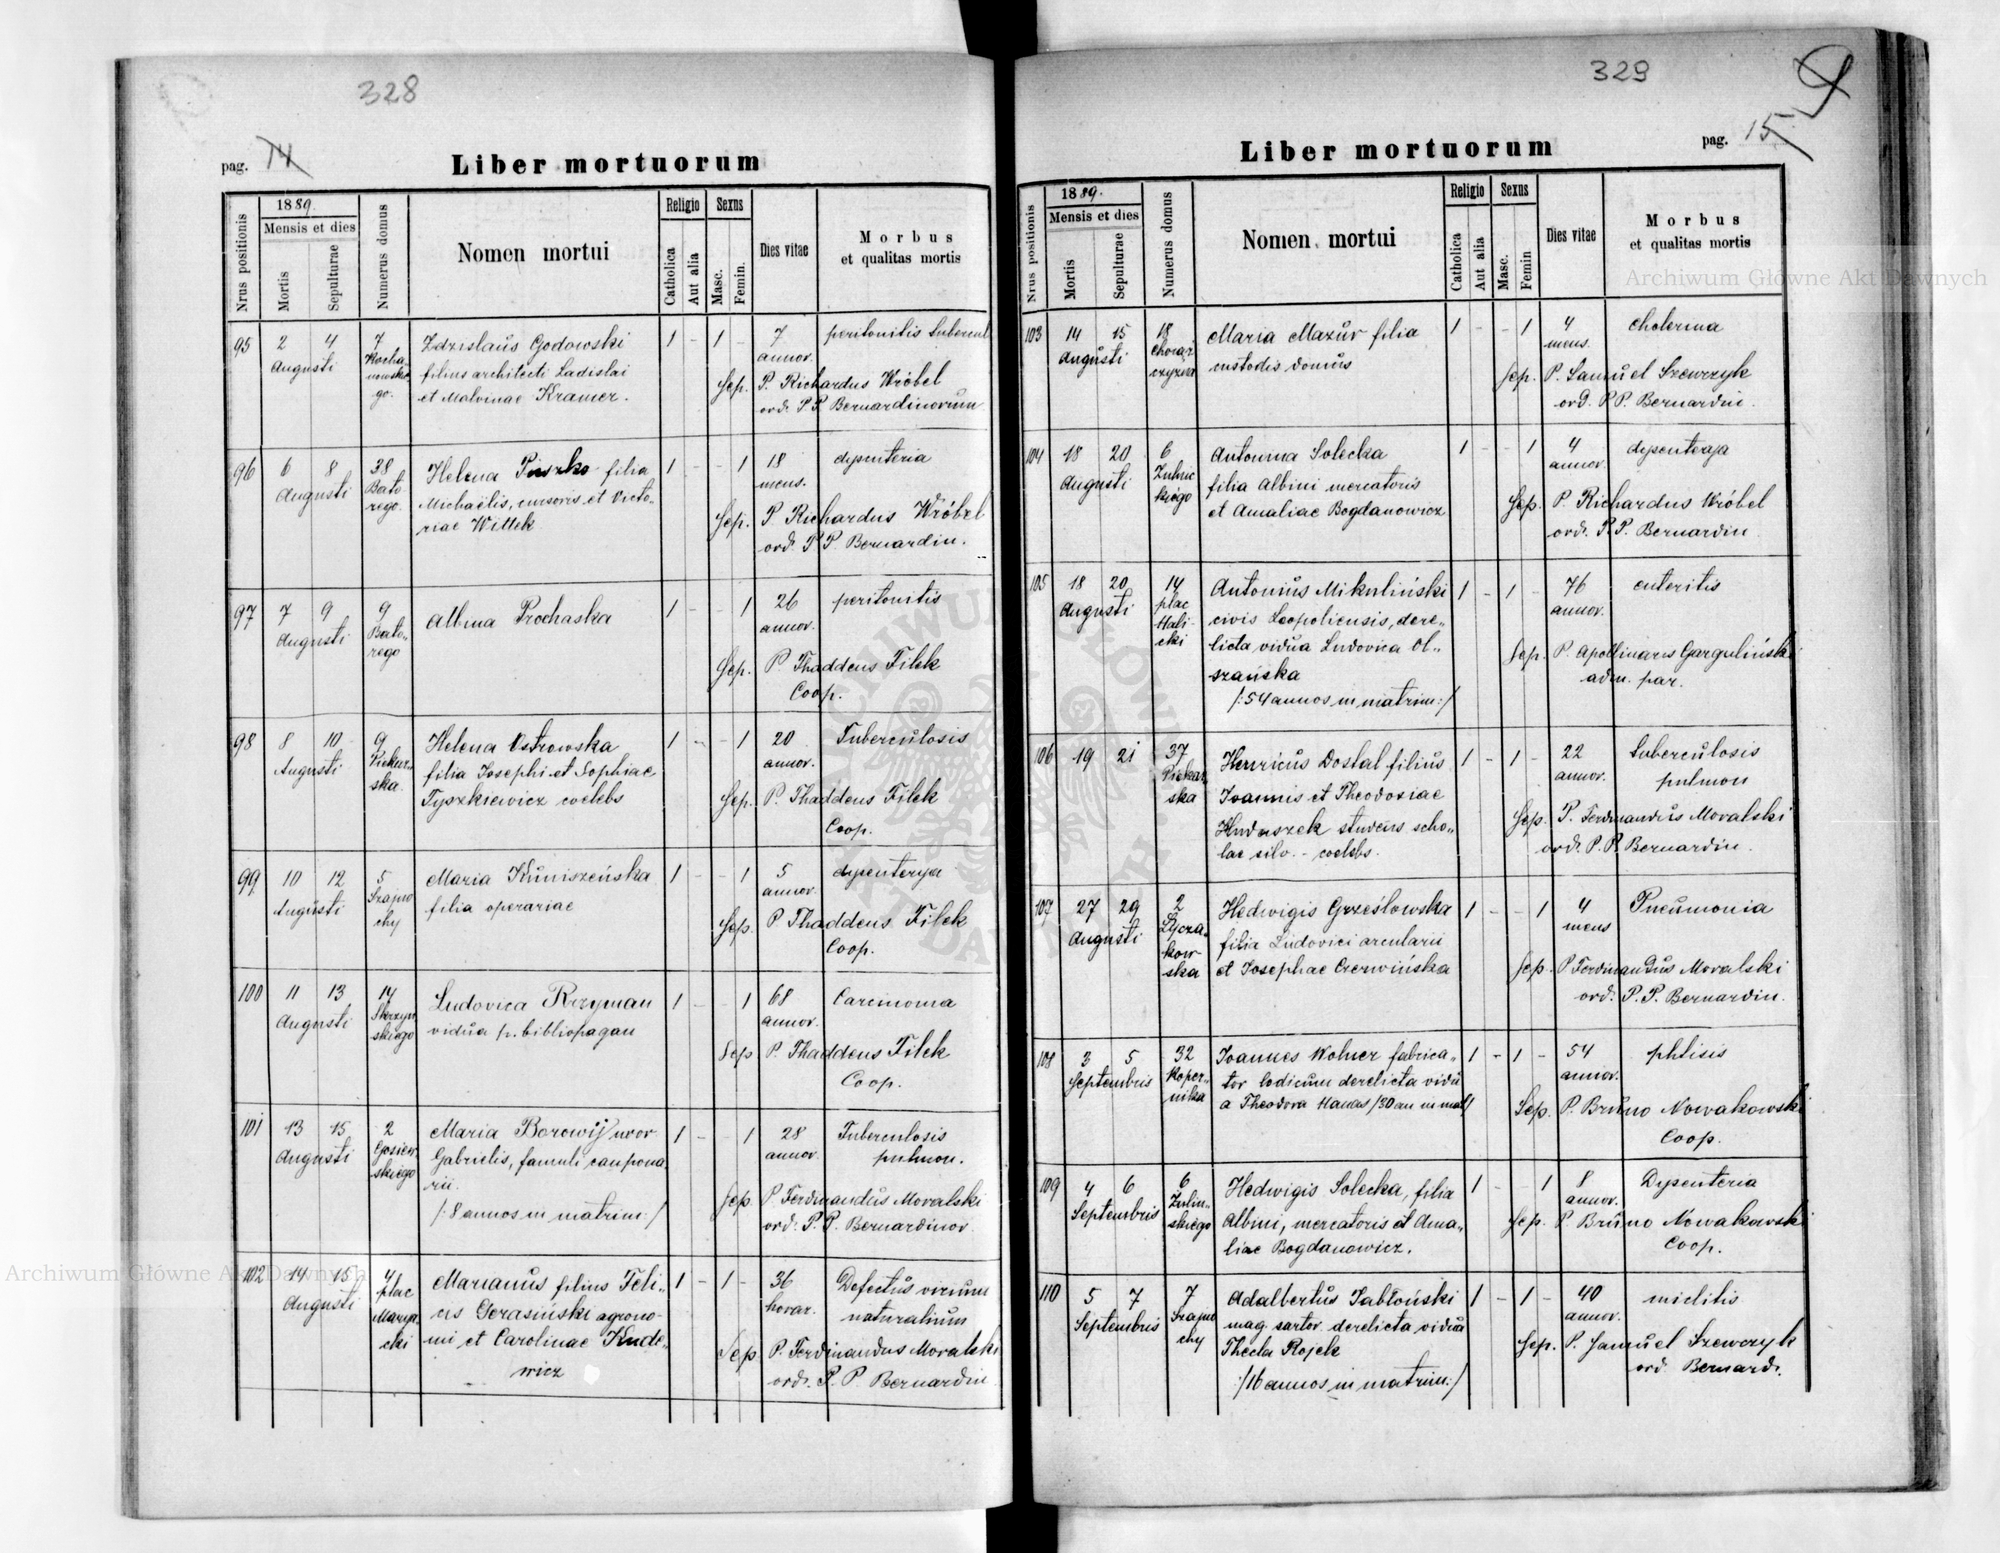 328
pag. 14
Liber mortuorum
Nrus positionis
1889.
Mensis et dies
Mortis
Sepulturae
Numerus domus
Nomen mortui
Religio
Catholica
Aut alia
Sexus
Masc.
Femin.
Dies vitae
Morbus
et qualitas mortis
95 2 4 7 Zdzislaus Godowski 1 - 1 - 7 peritonitis tubercul
Augusti Kocha nowskie go. filius architecti Ladislai annor.
et Malvinae Kramer. Sep. P. Richardus Wróbel
ord. P.P. Bernardinorum
96 6 8 38 Helena Piszko filia 1 - - 1 18 dysenteria
Augusti Bato rego. Michaëlis, cursoris et Victo- mens.
riae Wittek Sep. P Richardus Wróbel
ord. P P. Bernardin.
97 7 9 9 Albina Prochaska 1 - - 1 26 peritonitis
Augusti Bato- rego annor.
Sep. P. Thaddeus Filek
Coop.
98 8 10 9 Helena Ostrowska 1 - - 1 20 Tuberculosis
Augusti Piekar- ska. filia Josephi et Sophiae annor.
Tyszkiewicz coelebs Sep. P. Thaddeus Filek
Coop.
99 10 12 5 Maria Kuniszeńska 1 - - 1 5 dysenterya
Augusti Szajno chy filia operariae annor.
Sep. P Thaddeus Filek
Coop.
100 11 13 14 Ludovica Rizyman 1 - - 1 68 Carcinoma
Augusti Skrzyn skiego vidua p. bibliopagan annor.
Sep P. Thaddeus Filek
Coop.
101 13 15 2 Maria Borowij uxor 1 - - 1 28 Tuberculosis
Augusti Gosiew skiego Gabrielis, famuli caupona annor. pulmon.
rii. Sep P. Ferdinandus Moralski
/:8 annos in matrim:/ ord. P. P. Bernardinor.
102 14 15 4 Marianus filius Feli- 1 - 1 - 36 Defectus virium
Augusti plac Maryja cki cis Gerasiński agrono- horar. naturalium
mi et Carolinae Kude- Sep P. Ferdinandus Moralski
wicz ord. P. P. Bernardin
329
pag. 15
Liber mortuorum
Nrus positionis
1889.
Mensis et dies
Mortis
Sepulturae
Numerus domus
Nomen mortui
Religio
Catholica
Aut alia
Sexus
Masc.
Femin
Dies vitae
Morbus
et qualitas mortis
103 14 15 18 Maria Mazur filia 1 - - 1 4 cholerina
Augusti Chorąż czyzna custodis domus mens.
Sep. P. Samuel Szewczyk
ord. P.P. Bernardin.
104 18 20 6 Antonina Solecka 1 - - 1 4 dysenteria
Augusti filia Albini mercatoris annor.
et Amaliae Bogdanowicz Sep. P. Richardus Wróbel
ord. P.P. Bernardin
105 18 20 14 Antonius Mikuliński 1 - 1 - 76 enteritis
Augusti plac Hali- cki civis Leopoliensis, dere- annor.
licta vidua Ludovica Ol- Sep. P. Apollinaris Garguliński
szańska adm. par.
/:54 annos in matrim:/
106 19 21 37 Henricus Dostal filius 1 - 1 - 22 tuberculosis
Piekar ska Joannis et Theodosiae annor. pulmon
studens scho- Sep. P. Ferdinandus Moralski
lae silv. - coelebs. ord. P. P. Bernardin.
107 27 29 2 Hedwigis Grześlowska 1 - - 1 4 Pneumonia
Augusti Łycza- kow- ska filia Ludovici arcularii mens
et Josephae Czerwińska Sep. P Ferdinandus Moralski
ord. P. P. Bernardin.
108 3 5 32 Joannes Wolner fabrica- 1 - 1 - 54 phtisis
Septembris Koper- nika tor lodicum derelicta vidu annor.
a Theodora Hanas /30 an in mat/ Sep. P. Bruno Nowakowski
Coop.
109 4 6 6 Hedwigis Solecka, filia 1 - - 1 8 Dysenteria
Septembris Zulin- skiego Albini, mercatoris et Ama- annor.
liae Bogdanowicz. Sep. P Bruno Nowakowski
Coop.
110 5 7 7 Adalbertus Jabłoński 1 - 1 - 40 mielitis
Septembris Szajno chy mag. sartor. derelicta vidua annor.
Thecla Rojek Sep. P. Samuel Szewczyk
:/16 annos in matrim:/ ord. Bernard.
Archiwum Główne Akt Dawnych
Archiwum Główne Akt Dawnych